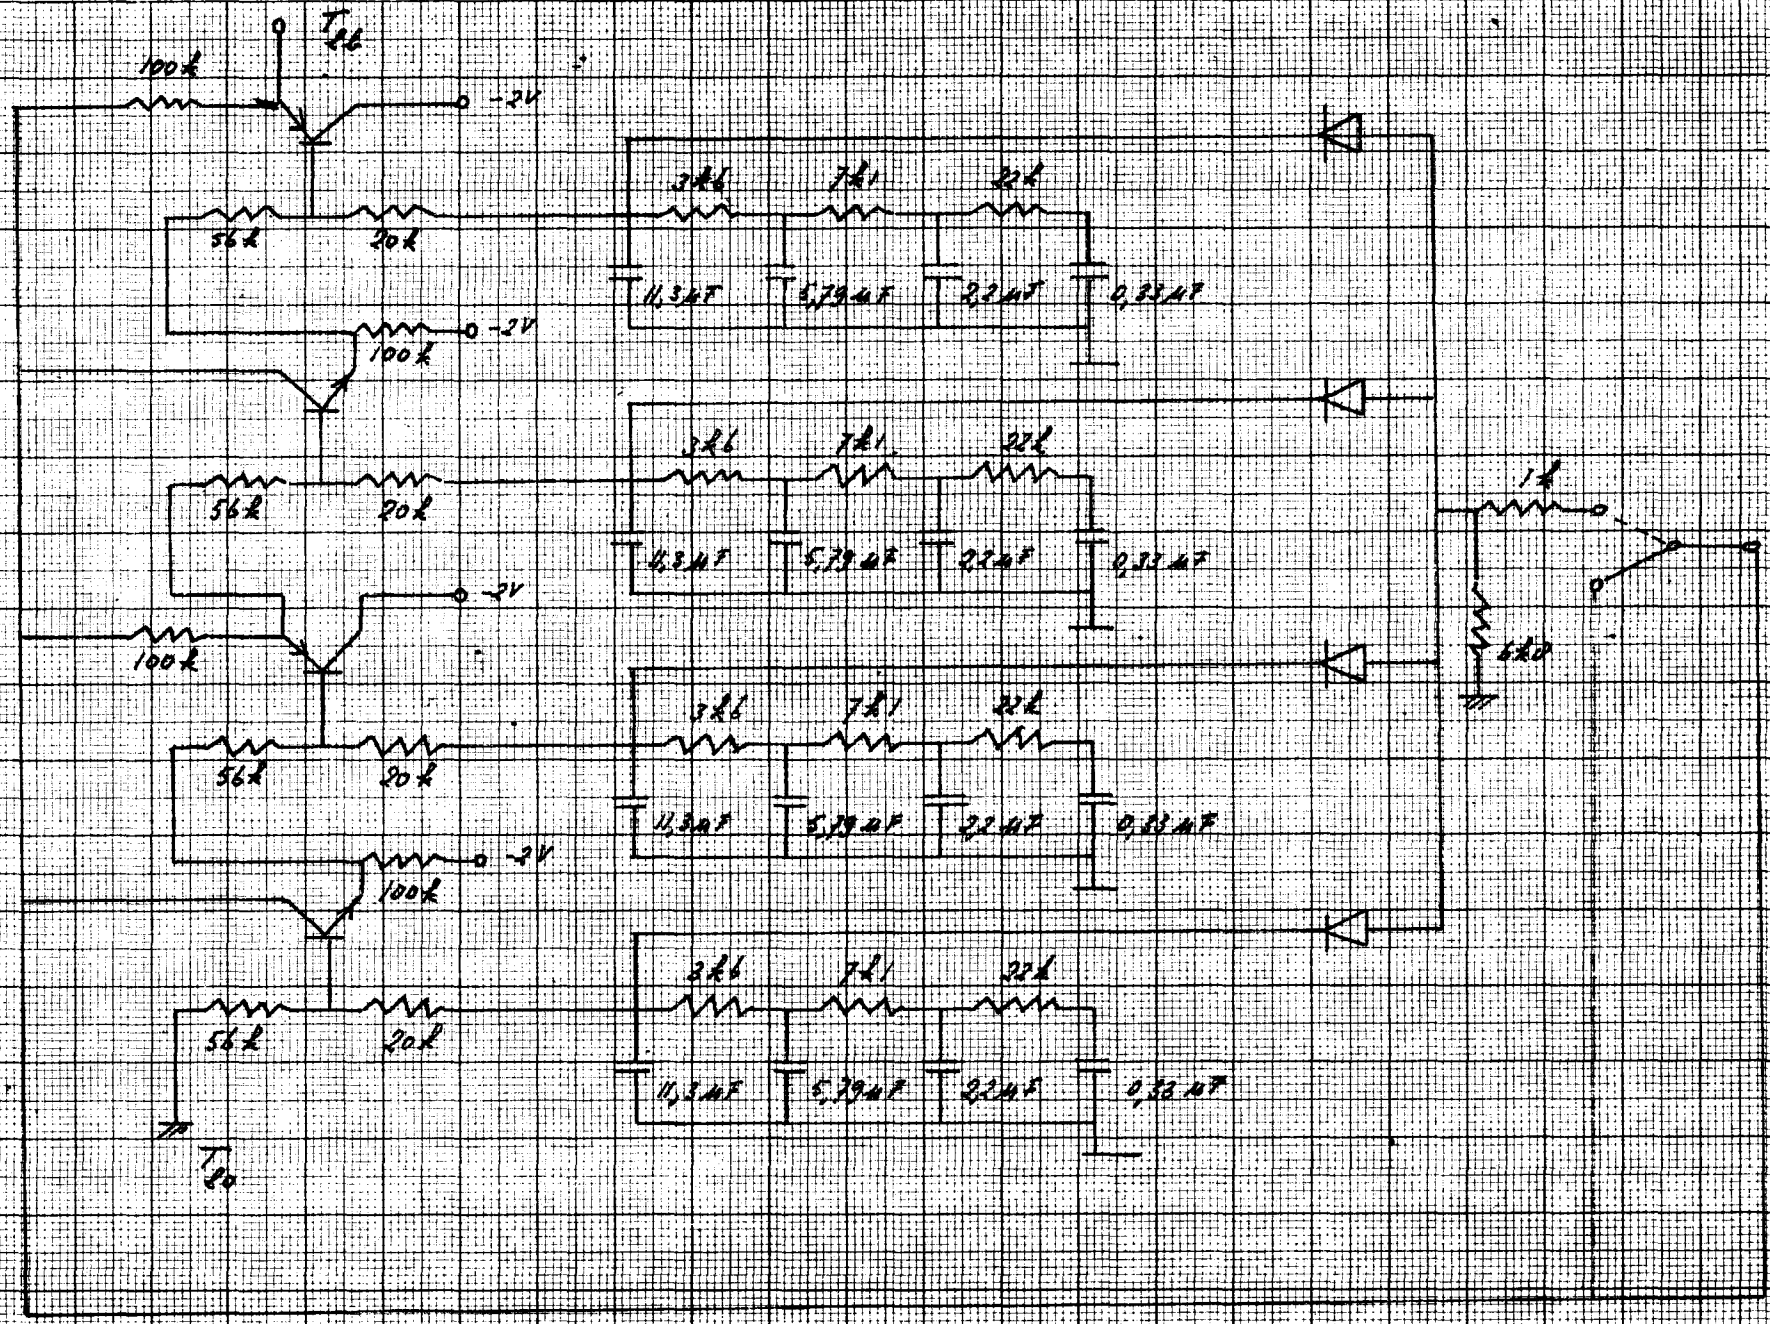 100k
-2V
3k6 7k1 22k
56k 20k
11,3µF 5,79µF 2,2µF 0,33µF
-2V
100k
3k6 7k1 22k
1k
56k 20k
11,3µF 5,79µF 2,2µF 0,33µF
-2V
100k
6k8
3k6 7k1 22k
56k 20k
11,3µF 5,79µF 2,2µF 0,33µF
-2V
100k
3k6 7k1 22k
56k 20k
11,3µF 5,79µF 2,2µF 0,33µF